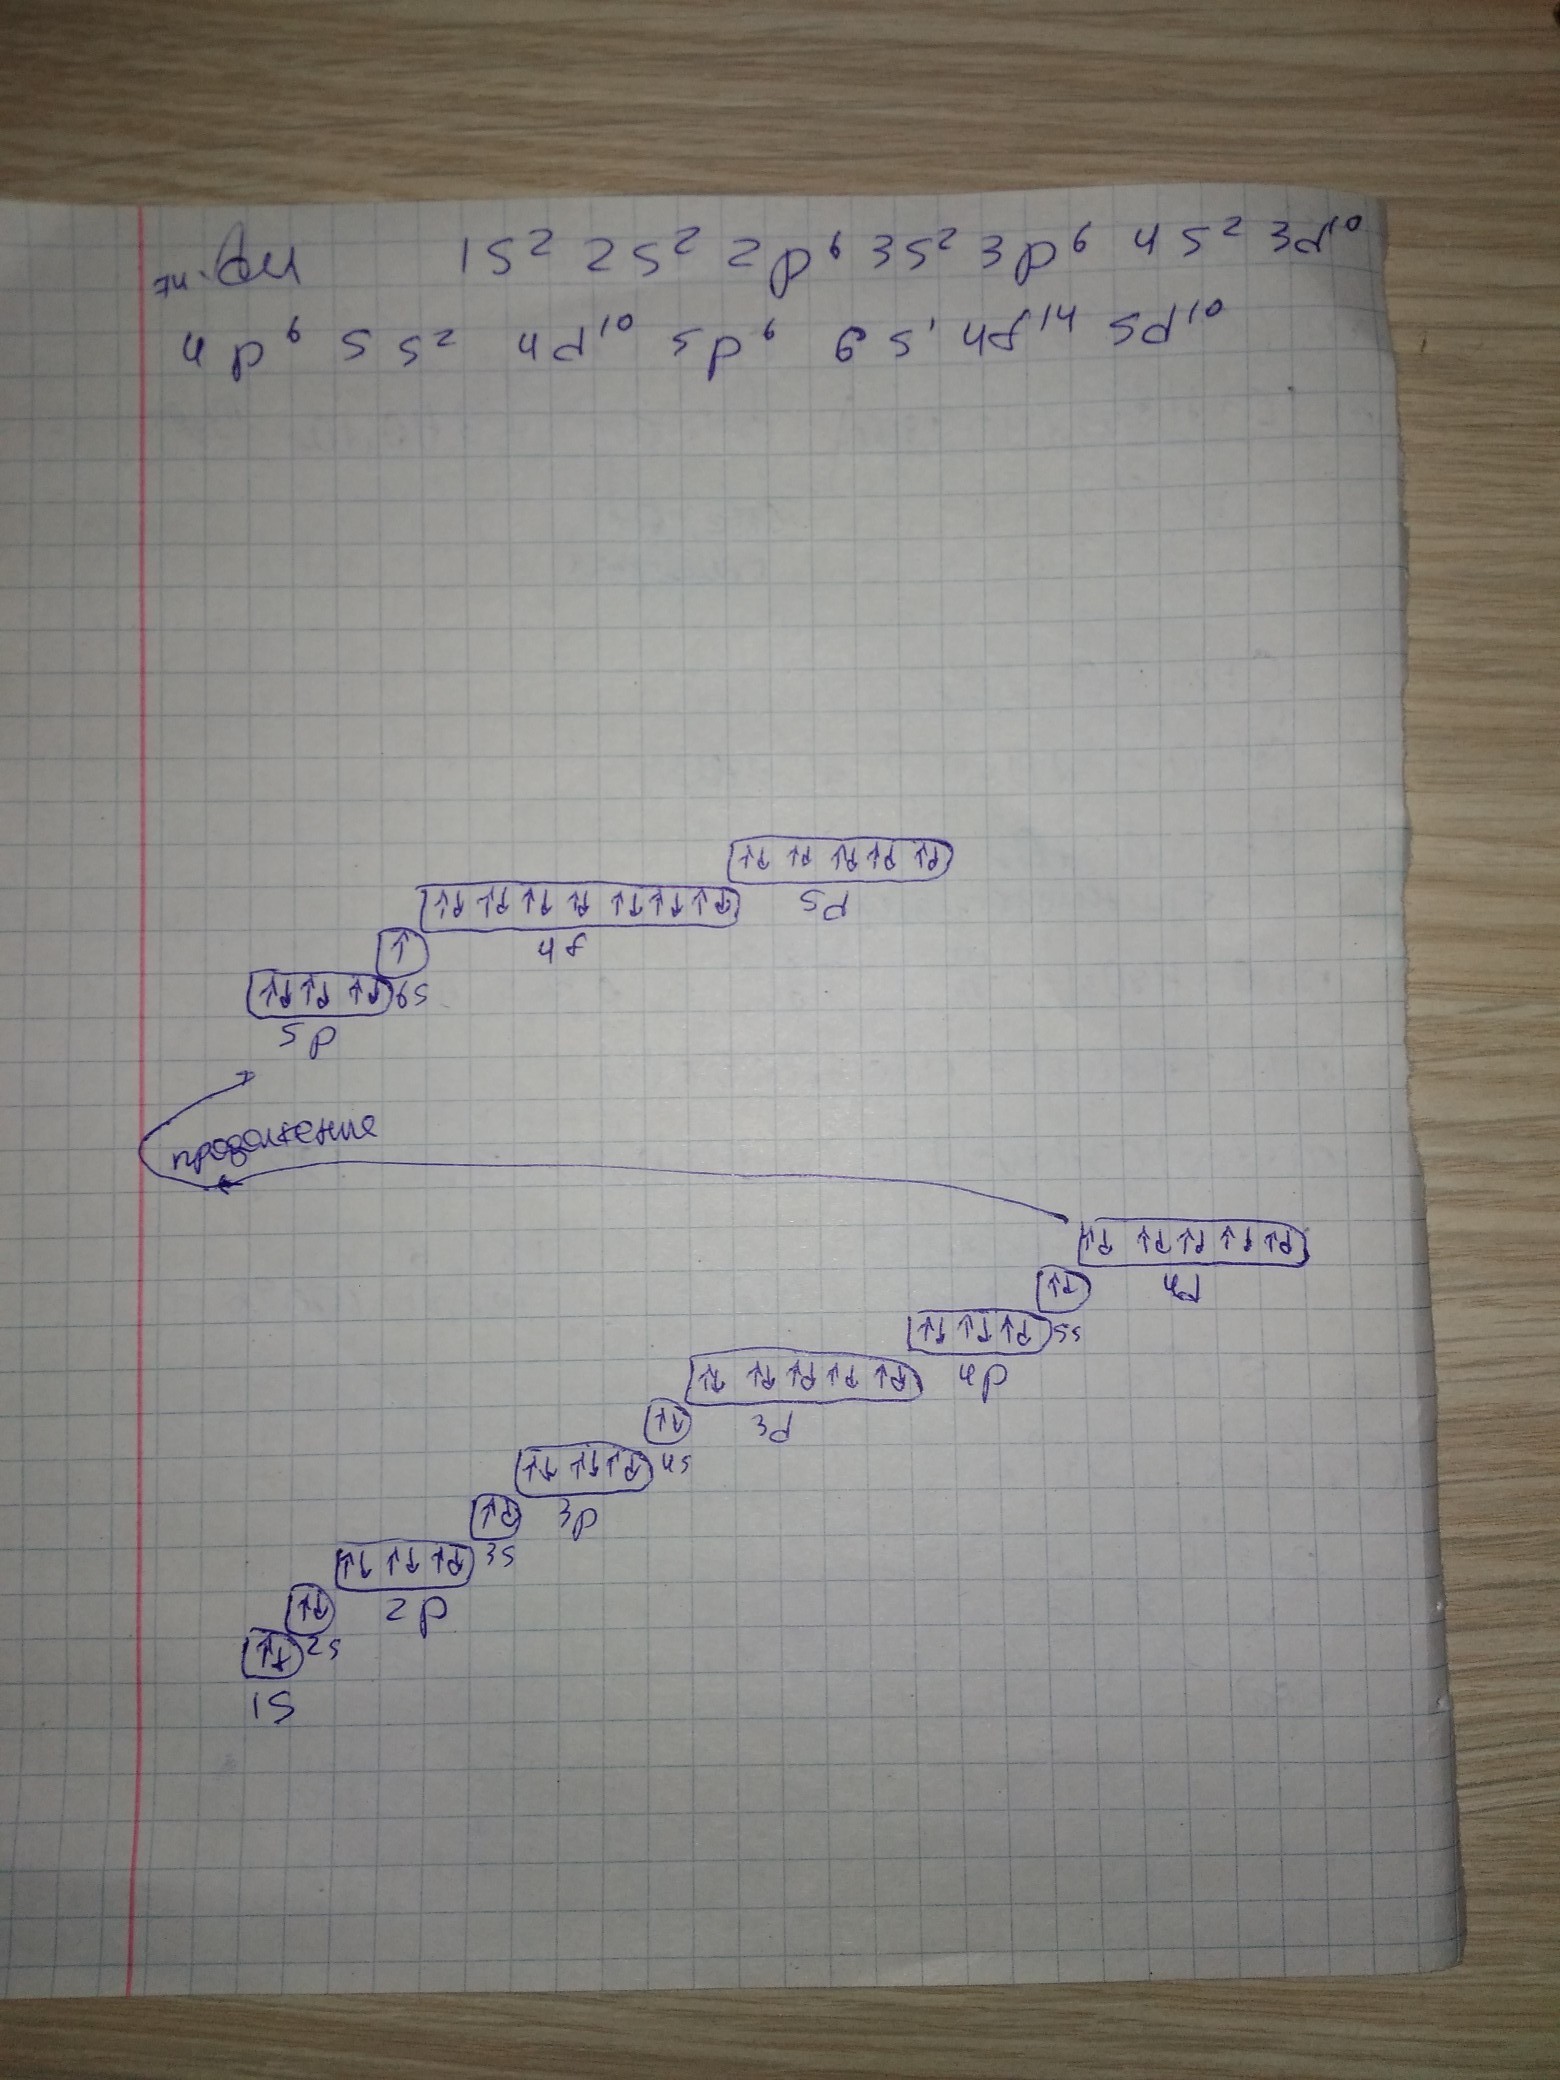 Au 1s² 2s² 2p⁶ 3s² 3p⁶ 4s² 3d¹⁰
4p⁶ 5s² 4d¹⁰ 5p⁶ 6s¹ 4f¹⁴ 5d¹⁰
↑↓ ↑↓ ↑↓ ↑↓ ↑↓
5d
↑↓ ↑↓ ↑↓ ↑↓ ↑↓ ↑↓ ↑↓
4f
↑
6s
↑↓ ↑↓ ↑↓
5p
продолжение
↑↓ ↑↓ ↑↓ ↑↓ ↑↓
4d
↑↓
5s
↑↓ ↑↓ ↑↓
4p
↑↓ ↑↓ ↑↓ ↑↓ ↑↓
3d
↑↓
4s
↑↓ ↑↓ ↑↓
3p
↑↓
3s
↑↓ ↑↓ ↑↓
2p
↑↓
2s
↑↓
1s